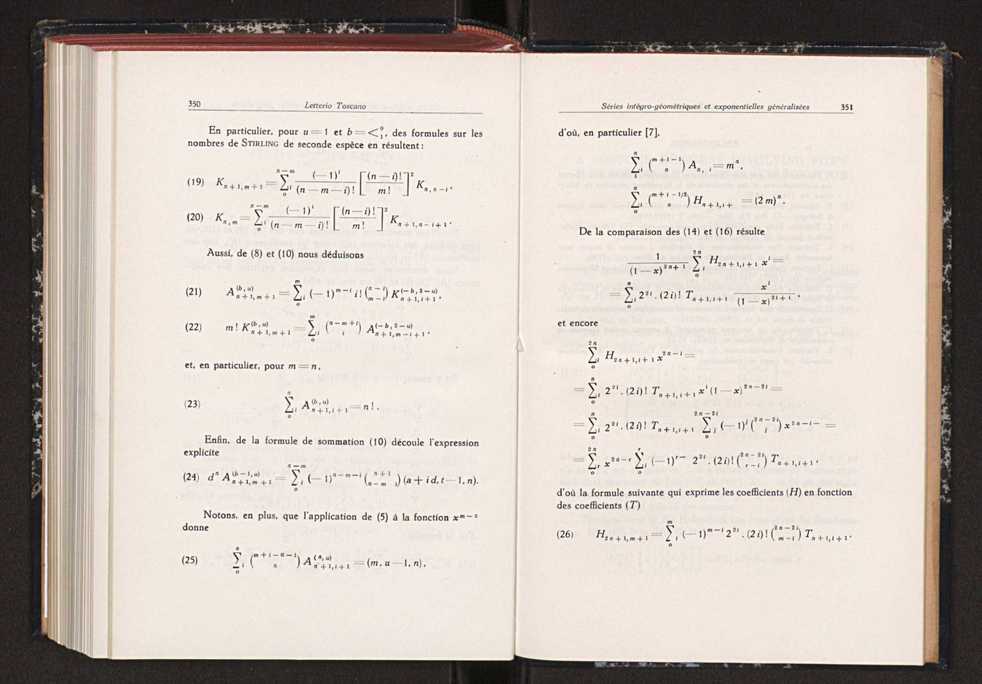 350 Letterio Toscano
En particulier, pour u = 1 et b = <⁰₁, des formules sur les
nombres de STIRLING de seconde espèce en résultent :
(19) K_{n+1, m+1} = \sum_{0}^{n-m}{}_i \frac{(-1)^i}{(n-m-i)!} \left[\frac{(n-i)!}{m!}\right]^2 K_{n, n-i},
(20) K_{n, m} = \sum_{0}^{n-m}{}_i \frac{(-1)^i}{(n-m-i)!} \left[\frac{(n-i)!}{m!}\right]^2 K_{n+1, n-i+1}.
Aussi, de (8) et (10) nous déduisons
(21) A^{(b,u)}_{n+1, m+1} = \sum_{0}^{m}{}_i (-1)^{m-i} i! \binom{n-i}{m-i} K^{(-b, 2-u)}_{n+1, i+1},
(22) m! K^{(b,u)}_{n+1, m+1} = \sum_{0}^{m}{}_i \binom{n-m+i}{i} A^{(-b, 2-u)}_{n+1, m-i+1},
et, en particulier, pour m = n,
(23) \sum_{0}^{n}{}_i A^{(b,u)}_{n+1, i+1} = n! .
Enfin, de la formule de sommation (10) découle l'expression
explicite
(24) d^n A^{(b-1,u)}_{n+1, m+1} = \sum_{0}^{n-m}{}_i (-1)^{n-m-i} \binom{n+1}{n-m i} (a + i d, t - 1, n).
Notons, en plus, que l'application de (5) à la fonction x^{m-s}
donne
(25) \sum_{0}^{n}{}_i \binom{m+i-u-1}{n} A^{(n,u)}_{n+1, i+1} = (m, u - 1, n),
Séries intégro-géométriques et exponentielles généralisées 351
d'où, en particulier [7],
\sum_{1}^{n}{}_i \binom{m+i-1}{n} A_{n, i} = m^n,
\sum_{0}^{n}{}_i \binom{m+i-1/2}{n} H_{n+1, i+} = (2 m)^n.
De la comparaison des (14) et (16) résulte
\frac{1}{(1-x)^{2n+1}} \sum_{0}^{2n}{}_i H_{2n+1, i+1} x^i =
= \sum_{0}^{n}{}_i 2^{2i} . (2 i)! T_{n+1, i+1} \frac{x^i}{(1-x)^{2i+1}},
et encore
\sum_{0}^{2n}{}_i H_{2n+1, i+1} x^{2n-i} =
= \sum_{0}^{n}{}_i 2^{2i} . (2 i)! T_{n+1, i+1} x^i (1 - x)^{2n-2i} =
= \sum_{0}^{n}{}_i 2^{2i} . (2 i)! T_{n+1, i+1} \sum_{0}^{2n-2i}{}_j (-1)^j \binom{2n-2i}{j} x^{2n-i-} =
= \sum_{0}^{2n}{}_r x^{2n-r} \sum_{0}^{r}{}_i (-1)^{r-} 2^{2i} . (2 i)! \binom{2n-2i}{r-i} T_{n+1, i+1},
d'où la formule suivante qui exprime les coefficients (H) en fonction
des coefficients (T)
(26) H_{2n+1, m+1} = \sum_{0}^{m}{}_i (-1)^{m-i} 2^{2i} . (2 i)! \binom{2n-2i}{m-i} T_{n+1, i+1}.